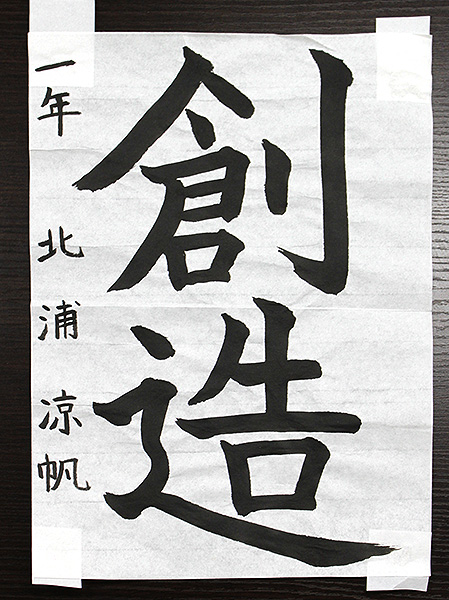 創造
一年 北浦 涼帆